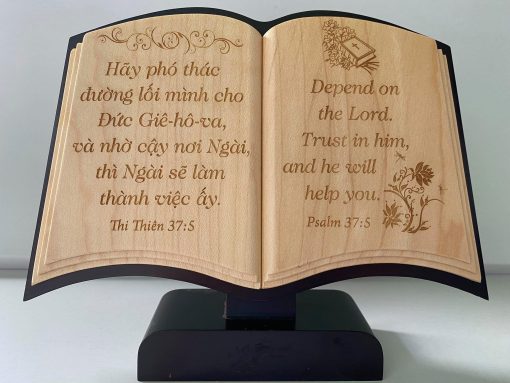 Hãy phó thác
đường lối mình cho
Đức Giê-hô-va,
và nhờ cậy nơi Ngài,
thì Ngài sẽ làm
thành việc ấy.
Thi Thiên 37:5
Depend on
the Lord.
Trust in him,
and he will
help you.
Psalm 37:5